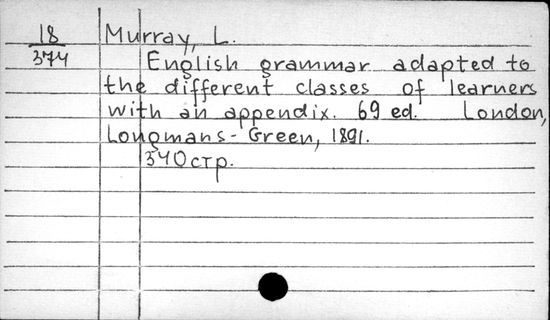 18 Murray, L.
374 English grammar adapted to
the different classes of learners
with an appendix. 69 ed. London,
Longmans-Green, 1891.
340стр.